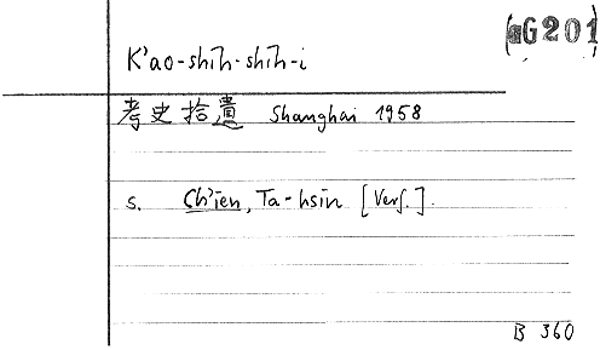 (aG201)
K'ao-shih-shih-i
考史拾遺 Shanghai 1958
s. Ch'ien, Ta-hsin [Verf.].
B 360